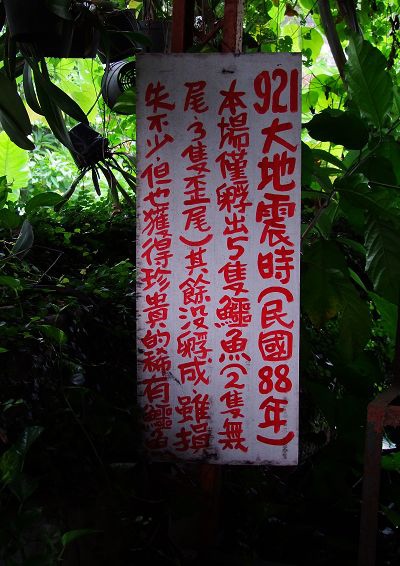 921大地震時(民國88年)
本場僅孵出5隻鱷魚(2隻無
尾,3隻歪尾)其餘沒孵成 雖損
失不少,但也獲得珍貴的稀有鱷魚